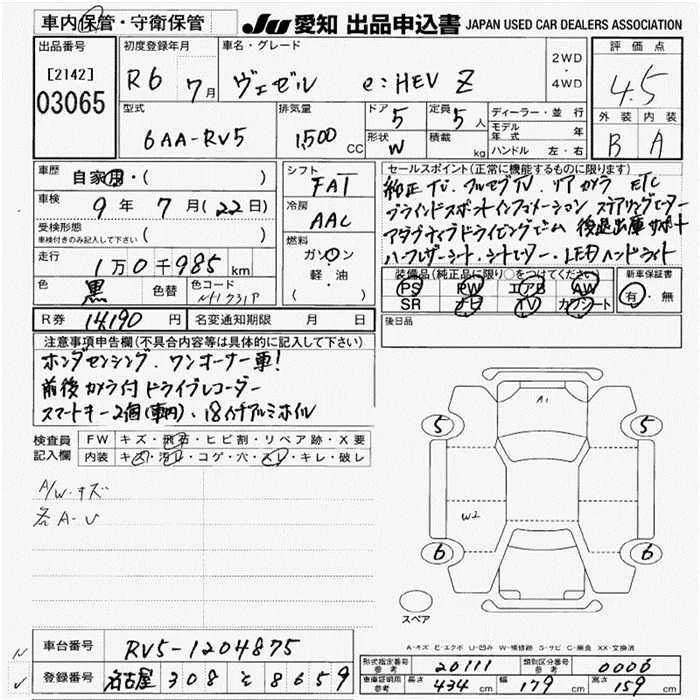 車内保管・守衛保管
JU 愛知 出品申込書 JAPAN USED CAR DEALERS ASSOCIATION
出品番号
[2142]
03065
初度登録年月
R6 7月
車名・グレード
ヴェゼル e:HEV Z
2WD
・
4WD
評価点
4.5
外装 内装
B A
型式
6AA-RV5
排気量
1,500 CC
ドア 5 定員 5人
形状 W 積載 kg
ディーラー・並行
モデル年式 年
ハンドル 左・右
車歴 自家用・( )
車検 9年 7月(22日)
受検形態
車検付きのみ記入して下さい ( )
走行 1万0千985km
色 黒 色替 色コード NH731P
シフト
FAT
冷房
AAC
燃料
ガソリン
軽・油
( )
セールスポイント(正常に機能するものに限ります)
純正ナビ・フルセグTV・リアカメラ ETC
ブラインドスポットインフォメーション ステアリングヒーター
アダプティブドライビングビーム 後退出庫サポート
ハーフレザーシート・シートヒーター・LEDヘッドライト
装備品(純正品に限り○をつけてください)
PS PW エアB AW
SR ナビ TV カワシート
新車保証書
有・無
R券 14190円 名変通知期限 月 日
後日品
注意事項申告欄(不具合内容等は具体的に記入して下さい)
ホンダセンシング、ワンオーナー車!
前後カメラ付ドライブレコーダー
スマートキー2個(車内)、18インチアルミホイル
検査員記入欄
FW キズ・飛石・ヒビ割・リペア跡・X要
内装 キズ・汚レ・コゲ・穴・スレ・キレ・破レ
A/W・キズ
各A-U
A1
W2
5 5
6 6
スペア
A-キズ E-エクボ U-凹み W-補修跡 S-サビ C-腐食 XX-交換済
車台番号 RV5-1204875
登録番号 名古屋 308 そ 8659
形式指定番号 参考 20111 類別区分番号 参考 0006
車庫証明用 参考 長さ 434cm 幅 179cm 高さ 159cm